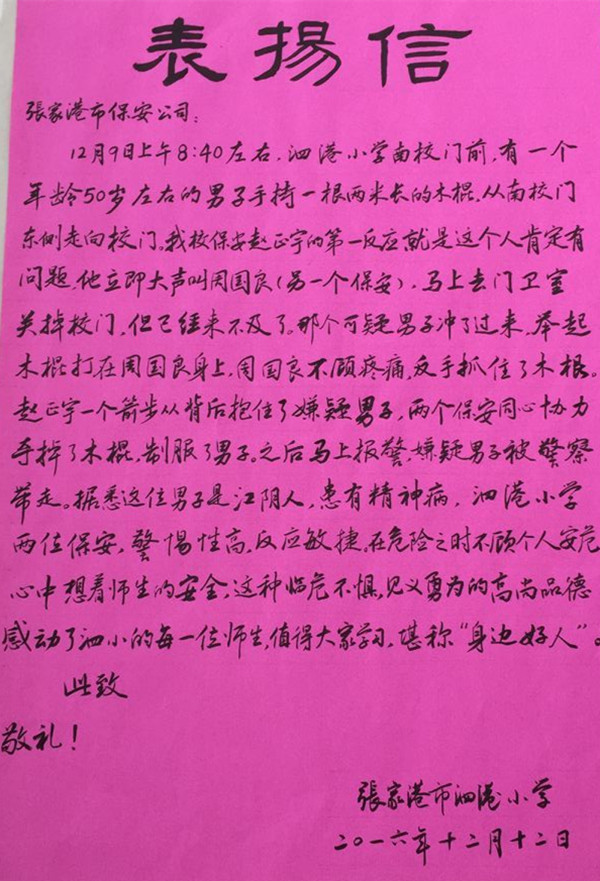 表揚信
張家港市保安公司：
12月9日上午8:40左右，泗港小学南校门前，有一个
年龄50岁左右的男子手持一根两米长的木棍，从南校门
东侧走向校门。我校保安赵正宇的第一反应就是这个人肯定有
问题，他立即大声叫周国良（另一个保安），马上去门卫室
关掉校门，但已经来不及了。那个可疑男子冲了过来，举起
木棍打在周国良身上，周国良不顾疼痛，反手抓住了木棍。
赵正宇一个箭步从背后抱住了嫌疑男子，两个保安同心协力
夺掉了木棍，制服了男子。之后马上报警，嫌疑男子被警察
带走。据悉这位男子是江阴人，患有精神病，泗港小学
两位保安，警惕性高，反应敏捷，在危险之时不顾个人安危
心中想着师生的安全，这种临危不惧，见义勇为的高尚品德
感动了泗小的每一位师生，值得大家学习，堪称“身边好人”。
此致
敬礼！
張家港市泗港小学
二〇一六年十二月十二日